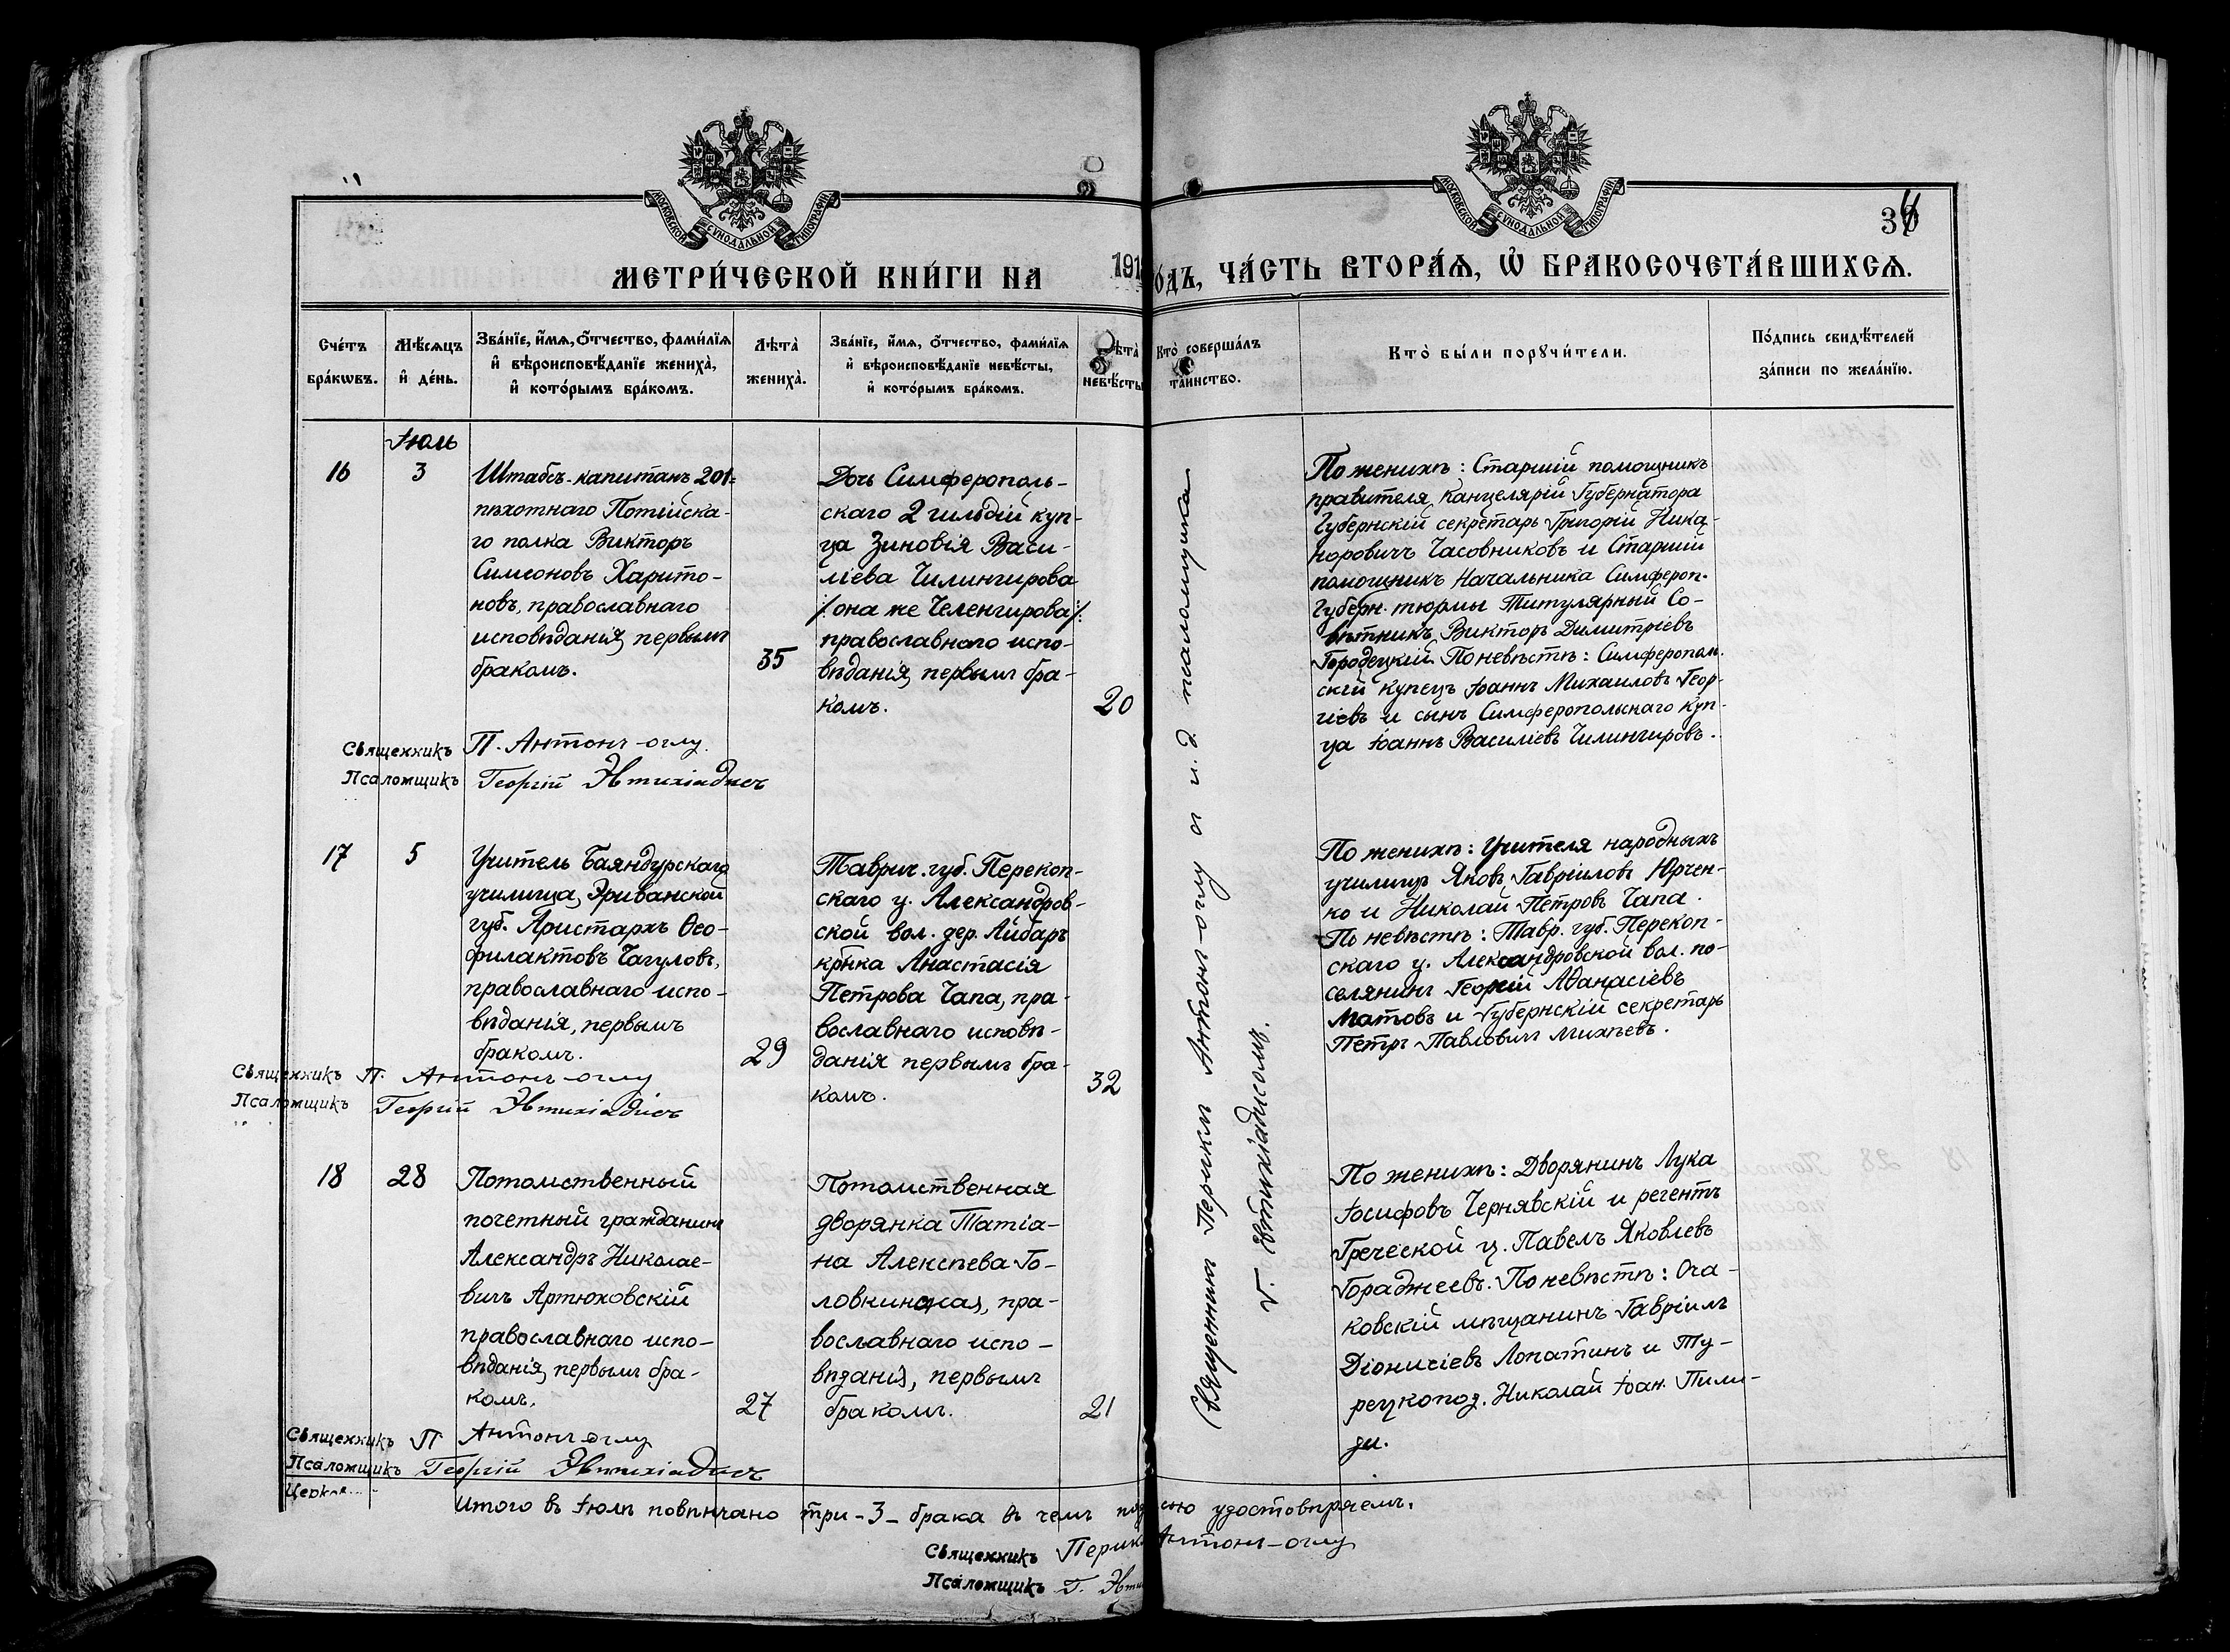 МОСКОВСКОЙ СѴНОДАЛЬНОЙ ТИПОГРАФІИ
МОСКОВСКОЙ СѴНОДАЛЬНОЙ ТИПОГРАФІИ
МЕТРИ́ЧЕСКОЙ КНИ́ГИ НА 191
ОДЪ, ЧА́СТЬ ВТОРА́Я, Ѽ БРАКОСОЧЕТА́ВШИХСЯ.
Сче́тъ бра́кѡвъ.
Мѣ́сяцъ и҆ де́нь.
Зва́нїе, и҆́мя, ѻ҆́тчество, фами́лїя
и҆ вѣроисповѣ́данїе жениха̀,
и҆ кото́рымъ бра́комъ.
Лѣта̀ жениха̀.
Зва́нїе, и҆́мя, ѻ҆́тчество, фами́лїя
и҆ вѣроисповѣ́данїе невѣ́сты,
и҆ кото́рымъ бра́комъ.
ѣта̀ невѣ́сты
Кто̀ соверша́лъ та́инство.
Кто̀ бы́ли порꙋчи́тели.
По́дпись свидѣ́телей за́писи по жела́нїю.
Іюль
16
3
Штабсъ-капитанъ 201=
пѣхотнаго Потійска-
го полка Викторъ
Симеоновъ Харито-
новъ, православнаго
исповѣданія, первымъ
бракомъ.
35
Дочь Симферополь-
скаго 2 гильдіи куп-
ца Зиновія Васи-
ліева Чилингирова
/: она же Челенгирова :/
православнаго испо-
вѣданія, первымъ бра-
комъ.
20
Священникъ П. Антонъ-оглу.
Псаломщикъ Георгій Эвтихіадисъ
По женихѣ: Старшій помощникъ
правителя канцелярій Губернатора
Губернскій секретарь Григорій Ника-
норовичъ Часовниковъ и Старшій
помощникъ Начальника Симфероп.
Губерн. тюрмы Титулярный Со-
вѣтникъ Викторъ Димитріевъ
Городецкій. По невѣстѣ: Симферополь-
скій купецъ Іоаннъ Михаиловъ Геор-
гіевъ и сынъ Симферопольскаго куп-
ца Іоаннъ Василіевъ Чилингировъ.
17
5
Учитель Баяндурскаго
училища, Эриванской
губ. Аристархъ Ѳео-
филактовъ Чагуловъ,
православнаго испо-
вѣданія, первымъ
бракомъ.
29
Таврич. губ. Перекоп-
скаго у. Александров-
ской вол. дер. Айбаръ
кр-нка Анастасія
Петрова Чапа, пра-
вославнаго исповѣ-
данія первымъ бра-
комъ.
32
Священникъ П. Антонъ-оглу
Псаломщикъ Георгій Эвтихіадисъ
По женихѣ: Учителя народныхъ
училищъ Яковъ Гавріиловъ Юрчен-
ко и Николай Петровъ Чапа.
По невѣстѣ: Тавр. губ. Перекоп-
скаго у. Александровской вол. по-
селянинъ Георгій Аѳанасіевъ
Матовъ и Губернскій секретарь
Петръ Павловичъ Михѣевъ.
18
28
Потомственный
почетный гражданинъ
Александръ Николае-
вичъ Артюховскій
православнаго испо-
вѣданія, первымъ бра-
комъ.
27
Потомственная
дворянка Татіа-
на Алексѣева Го-
ловкинская, пра-
вославнаго испо-
вѣданія, первымъ
бракомъ.
21
Священникъ П. Антонъ-оглу
Псаломщикъ Георгій Эвтихіадисъ
По женихѣ: Дворянинъ Лука
Іосифовъ Чернявскій и регентъ
Греческой ц. Павелъ Яковлевъ
Гораджеевъ. По невѣстѣ: Оча-
ковскій мѣщанинъ Гавріилъ
Діонисіевъ Лопатинъ и Ту-
рецкопод. Николай Іоан. Пили-
ди.
Священникъ Периклъ Антонъ-оглу и и.д псаломщика
Г. Эвтихіадисомъ.
Итого въ Іюлѣ повѣнчано три-3-брака въ чемъ под сью удостовѣряемъ.
Священникъ Перик Антонъ-оглу
Псаломщикъ Г. Эвти